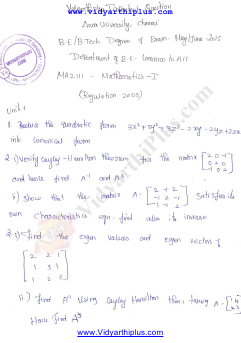 www.Vidyarthiplus.com
Question
Anna University, Chennai
B.E/B.Tech Degree Exam May/June-2015
Department of B.E. Common to All
MA2111 - Mathematics-I
(Regulation 2008)
Unit 1
1. Reduce the quadratic form 3x²+5y²+3z²-2xy-2yz+2zx
into canonical form
2. Verify Cayley-Hamilton theorem for the matrix [2 0 -1
0 2 0
-1 0 2]
and hence find A⁻¹ and A⁴
ii) Show that the matrix A = [2 -1 2
-1 2 -1
1 -1 2] Satisfies its
own characteristics eqn. find also its inverse
2.i) Find the eigen values and eigen vectors of
[2 2 1
1 3 1
1 2 2]
ii) Find Aⁿ using Cayley Hamilton thm, taking A =
Hence Find A³
www.Vidyarthiplus.com